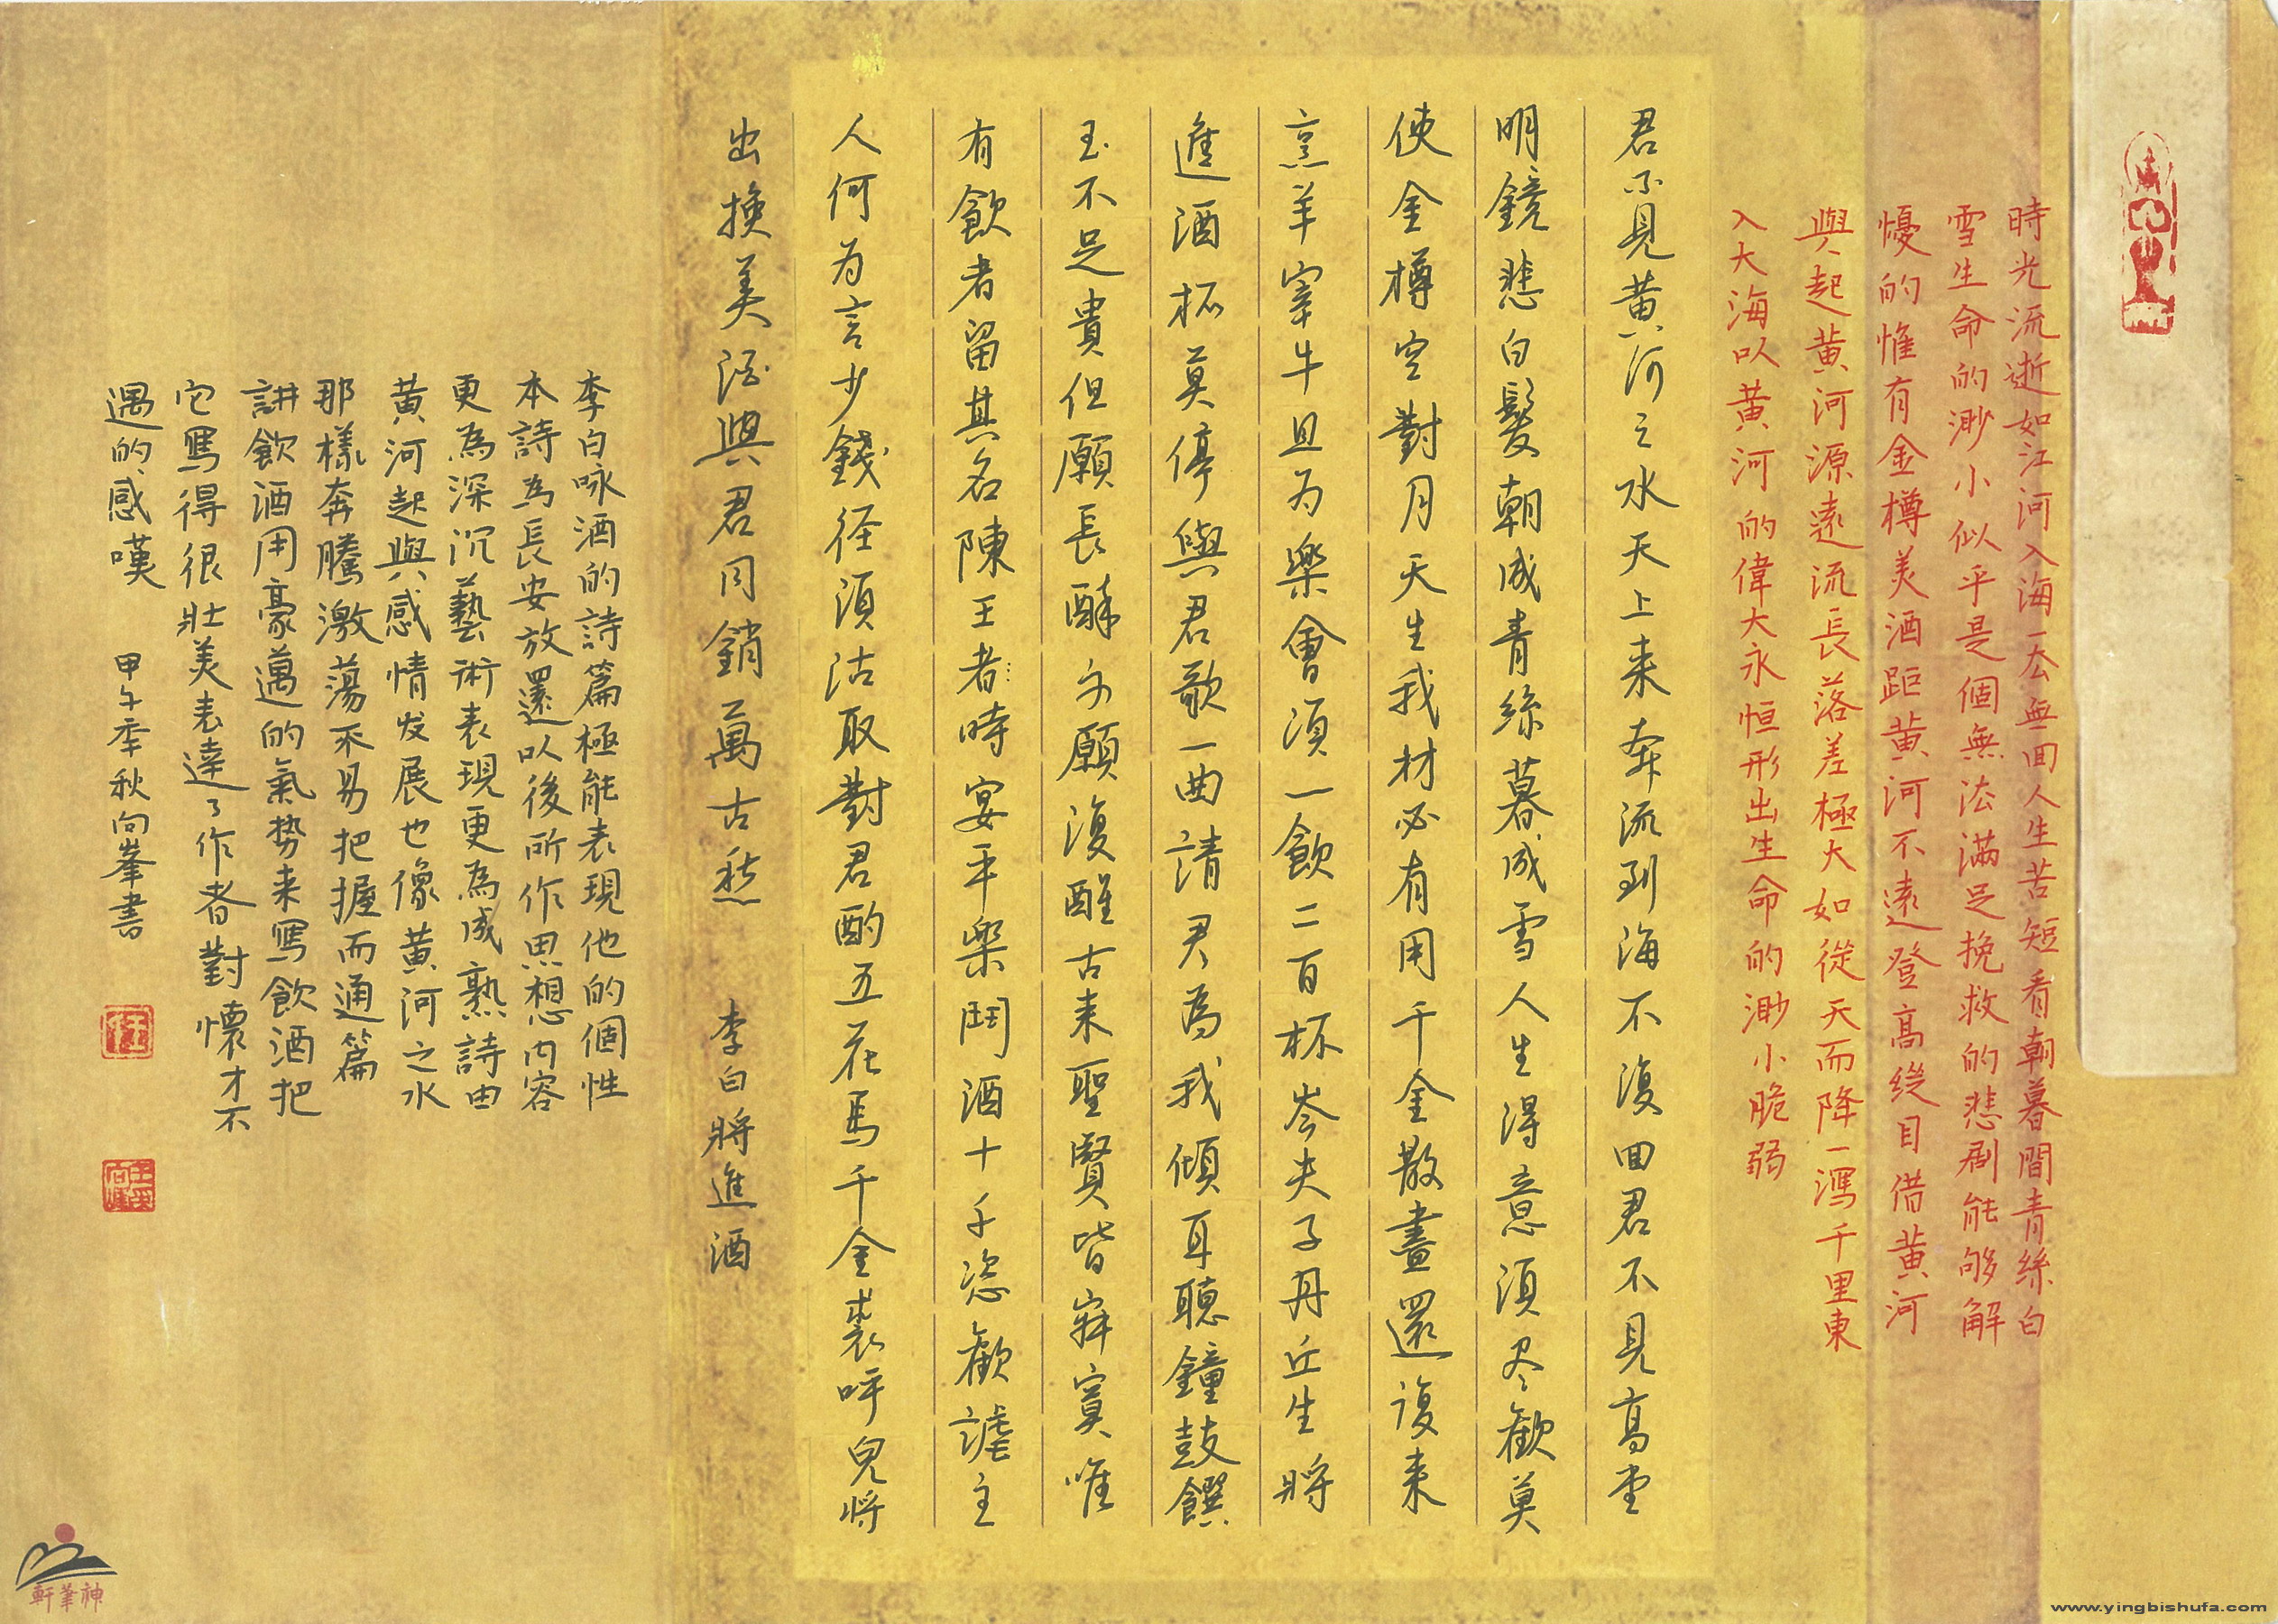 時光流逝如江河入海一去無回人生苦短看朝暮間青絲白
雪生命的渺小似乎是個無法滿足挽救的悲劇能够解
憂的惟有金樽美酒距黄河不遠登高縱目借黄河
與起黄河源遠流長落差極大如從天而降一瀉千里東
入大海以黄河的偉大永恒形出生命的渺小脆弱
君不見黄河之水天上来奔流到海不復回君不見高堂
明鏡悲白髮朝成青絲暮成雪人生得意須尽歡莫
使金樽空對月天生我材必有用千金散盡還復来
烹羊宰牛且为樂會須一飲三百杯岑夫子丹丘生將
進酒杯莫停與君歌一曲請君為我傾耳聽鐘鼓饌
玉不足貴但願長醉不願復醒古来聖賢皆寂寞唯
有飲者留其名陳王者時宴平樂鬥酒十千恣歡謔主
人何为言少錢径須沽取對君酌五花馬千金裘呼兒将
出換美酒與君同銷萬古愁 李白將進酒
李白咏酒的詩篇極能表現他的個性
本詩為長安放還以後所作思想内容
更為深沉藝術表現更為成熟詩由
黄河起與感情发展也像黄河之水
那樣奔騰激蕩不易把握而通篇
講飲酒用豪邁的氣势来寫飲酒把
它寫得很壯美表達了作者對懷才不
遇的感嘆 甲午季秋向峯書
軒筆神
www.yingbishufa.com